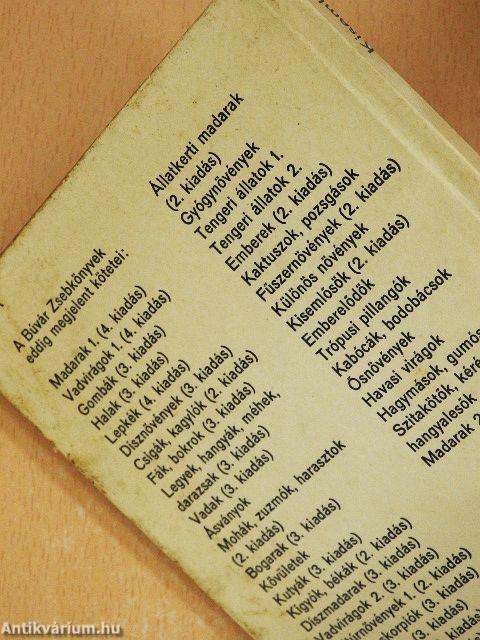 A Búvár Zsebkönyvek
eddig megjelent kötetei:
Madarak 1. (4. kiadás)
Vadvirágok 1. (4. kiadás)
Gombák (3. kiadás)
Halak (3. kiadás)
Lepkék (4. kiadás)
Dísznövények (3. kiadás)
Csigák, kagylók (2. kiadás)
Fák, bokrok (3. kiadás)
Legyek, hangyák, méhek,
darazsak (3. kiadás)
Vadak (3. kiadás)
Ásványok
Mohák, zuzmók, harasztok
(2. kiadás)
Bogarak (3. kiadás)
Kövületek
Kutyák (3. kiadás)
Kígyók, békák (2. kiadás)
Díszmadarak (3. kiadás)
Vadvirágok 2. (3. kiadás)
1. (2. kiadás)
kiadás)
Állatkerti madarak
(2. kiadás)
Gyógynövények
Tengeri állatok 1.
Tengeri állatok 2.
Emberek (2. kiadás)
Kaktuszok, pozsgások
Fűszernövények (2. kiadás)
Különös növények
Kisemlősök (2. kiadás)
Emberelődök
Trópusi pillangók
Kabócák, bodobácsok
Ősnövények
Havasi virágok
Hagymások, gumós
Szitakötők, kéré
hangyalesők
Madarak 2
Antikvárium.hu